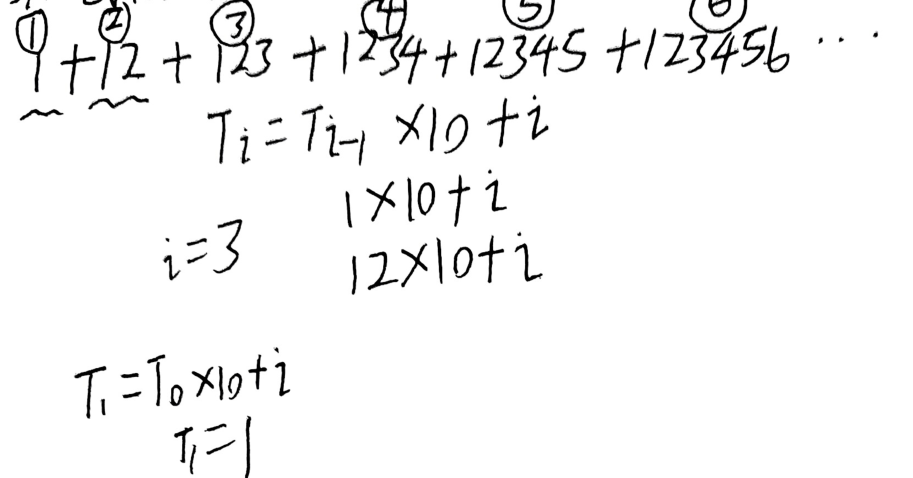 ① ② ③ ④ ⑤ ⑥
1 + 12 + 123 + 1234 + 12345 + 123456 ...
Ti = Ti-1 ×10 + i
1×10 + i
i = 3
12×10 + i
T1 = T0 ×10 + i
T1 = 1